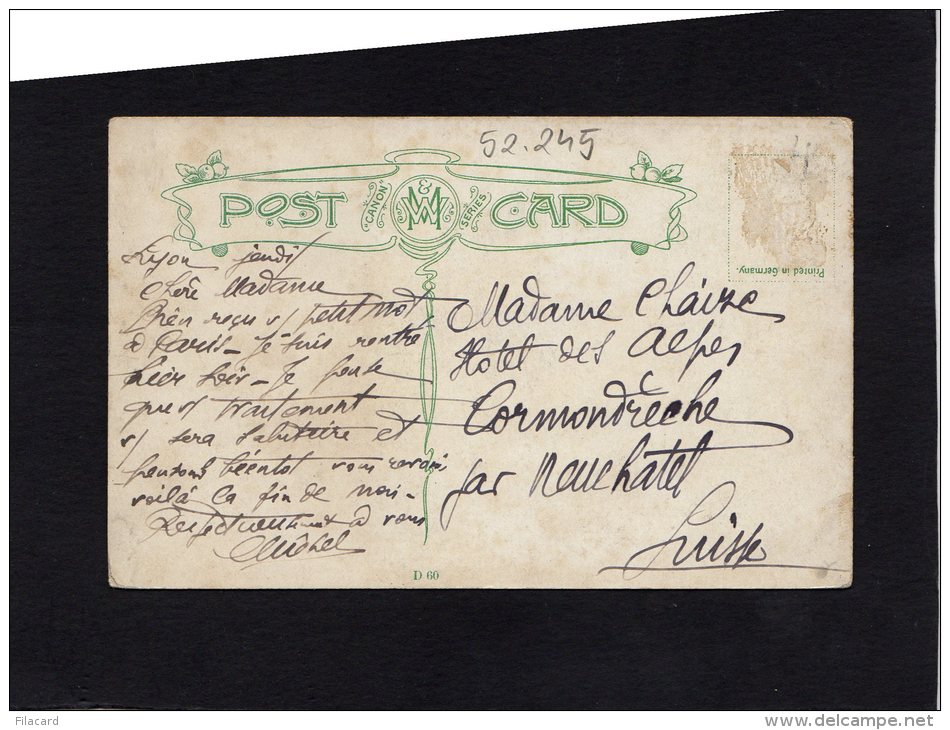 52.245
POST CARD
"CANON" SERIES
M & W
Printed in Germany.
Lyon jeudi
Chère Madame
Bien reçu v/ petit mot
à Paris - Je suis rentré
hier soir - Je pense
que v/ traitement
v/ sera salutaire et
pensons bientôt vous revoir
voilà la fin de mois -
Respectueusement à vous
Michel
Madame Chaize
Hotel des Alpes
Cormondrèche
par Neuchatel
Suisse
D 60
Filacard
www.delcampe.net